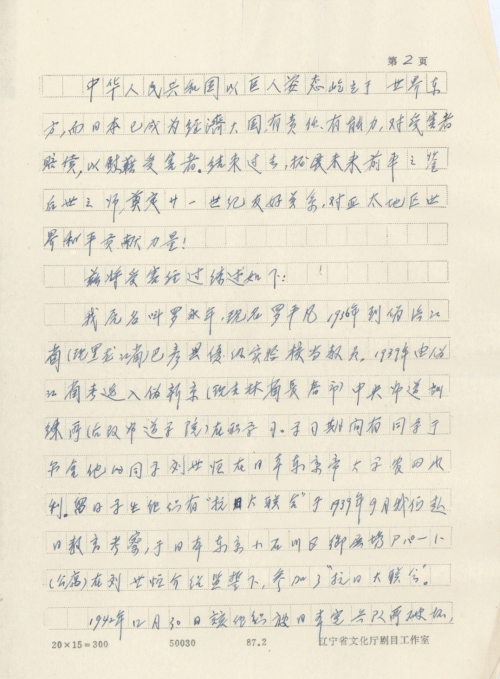 第2页
中华人民共和国以巨人姿态屹立于世界东
方,而日本已成为经济大国有责任有能力,对受害者
赔偿,以慰藉受害者。结束过去,拓展未来前事之鉴
后世之师,奠定廿一世纪友好关系,对亚太地区世
界和平贡献力量!
兹将受害经过缕述如下:
我原名叫罗永年,现名罗平凡 1936年到伪滨江
省(现黑龙江省)巴彦县优级实验校当教员。1939年由伪
江省考选入伪新京(现吉林省长春市)中央师道训
练所(后改师道学院)在职学习。学习期间有同学于
他的同学刘世恒在日本东京帝大学农田水
利。留日学生他们有“抗日大联合”于1939年9月我们赴
日教育考察,于日本东京小石川区
(公寓)在刘世恒介绍监誓下,参加了“抗日大联合”。
1942年12月30日该组织被日本宪兵队所破坏,
20×15=300 50030 87.2 辽宁省文化厅剧目工作室